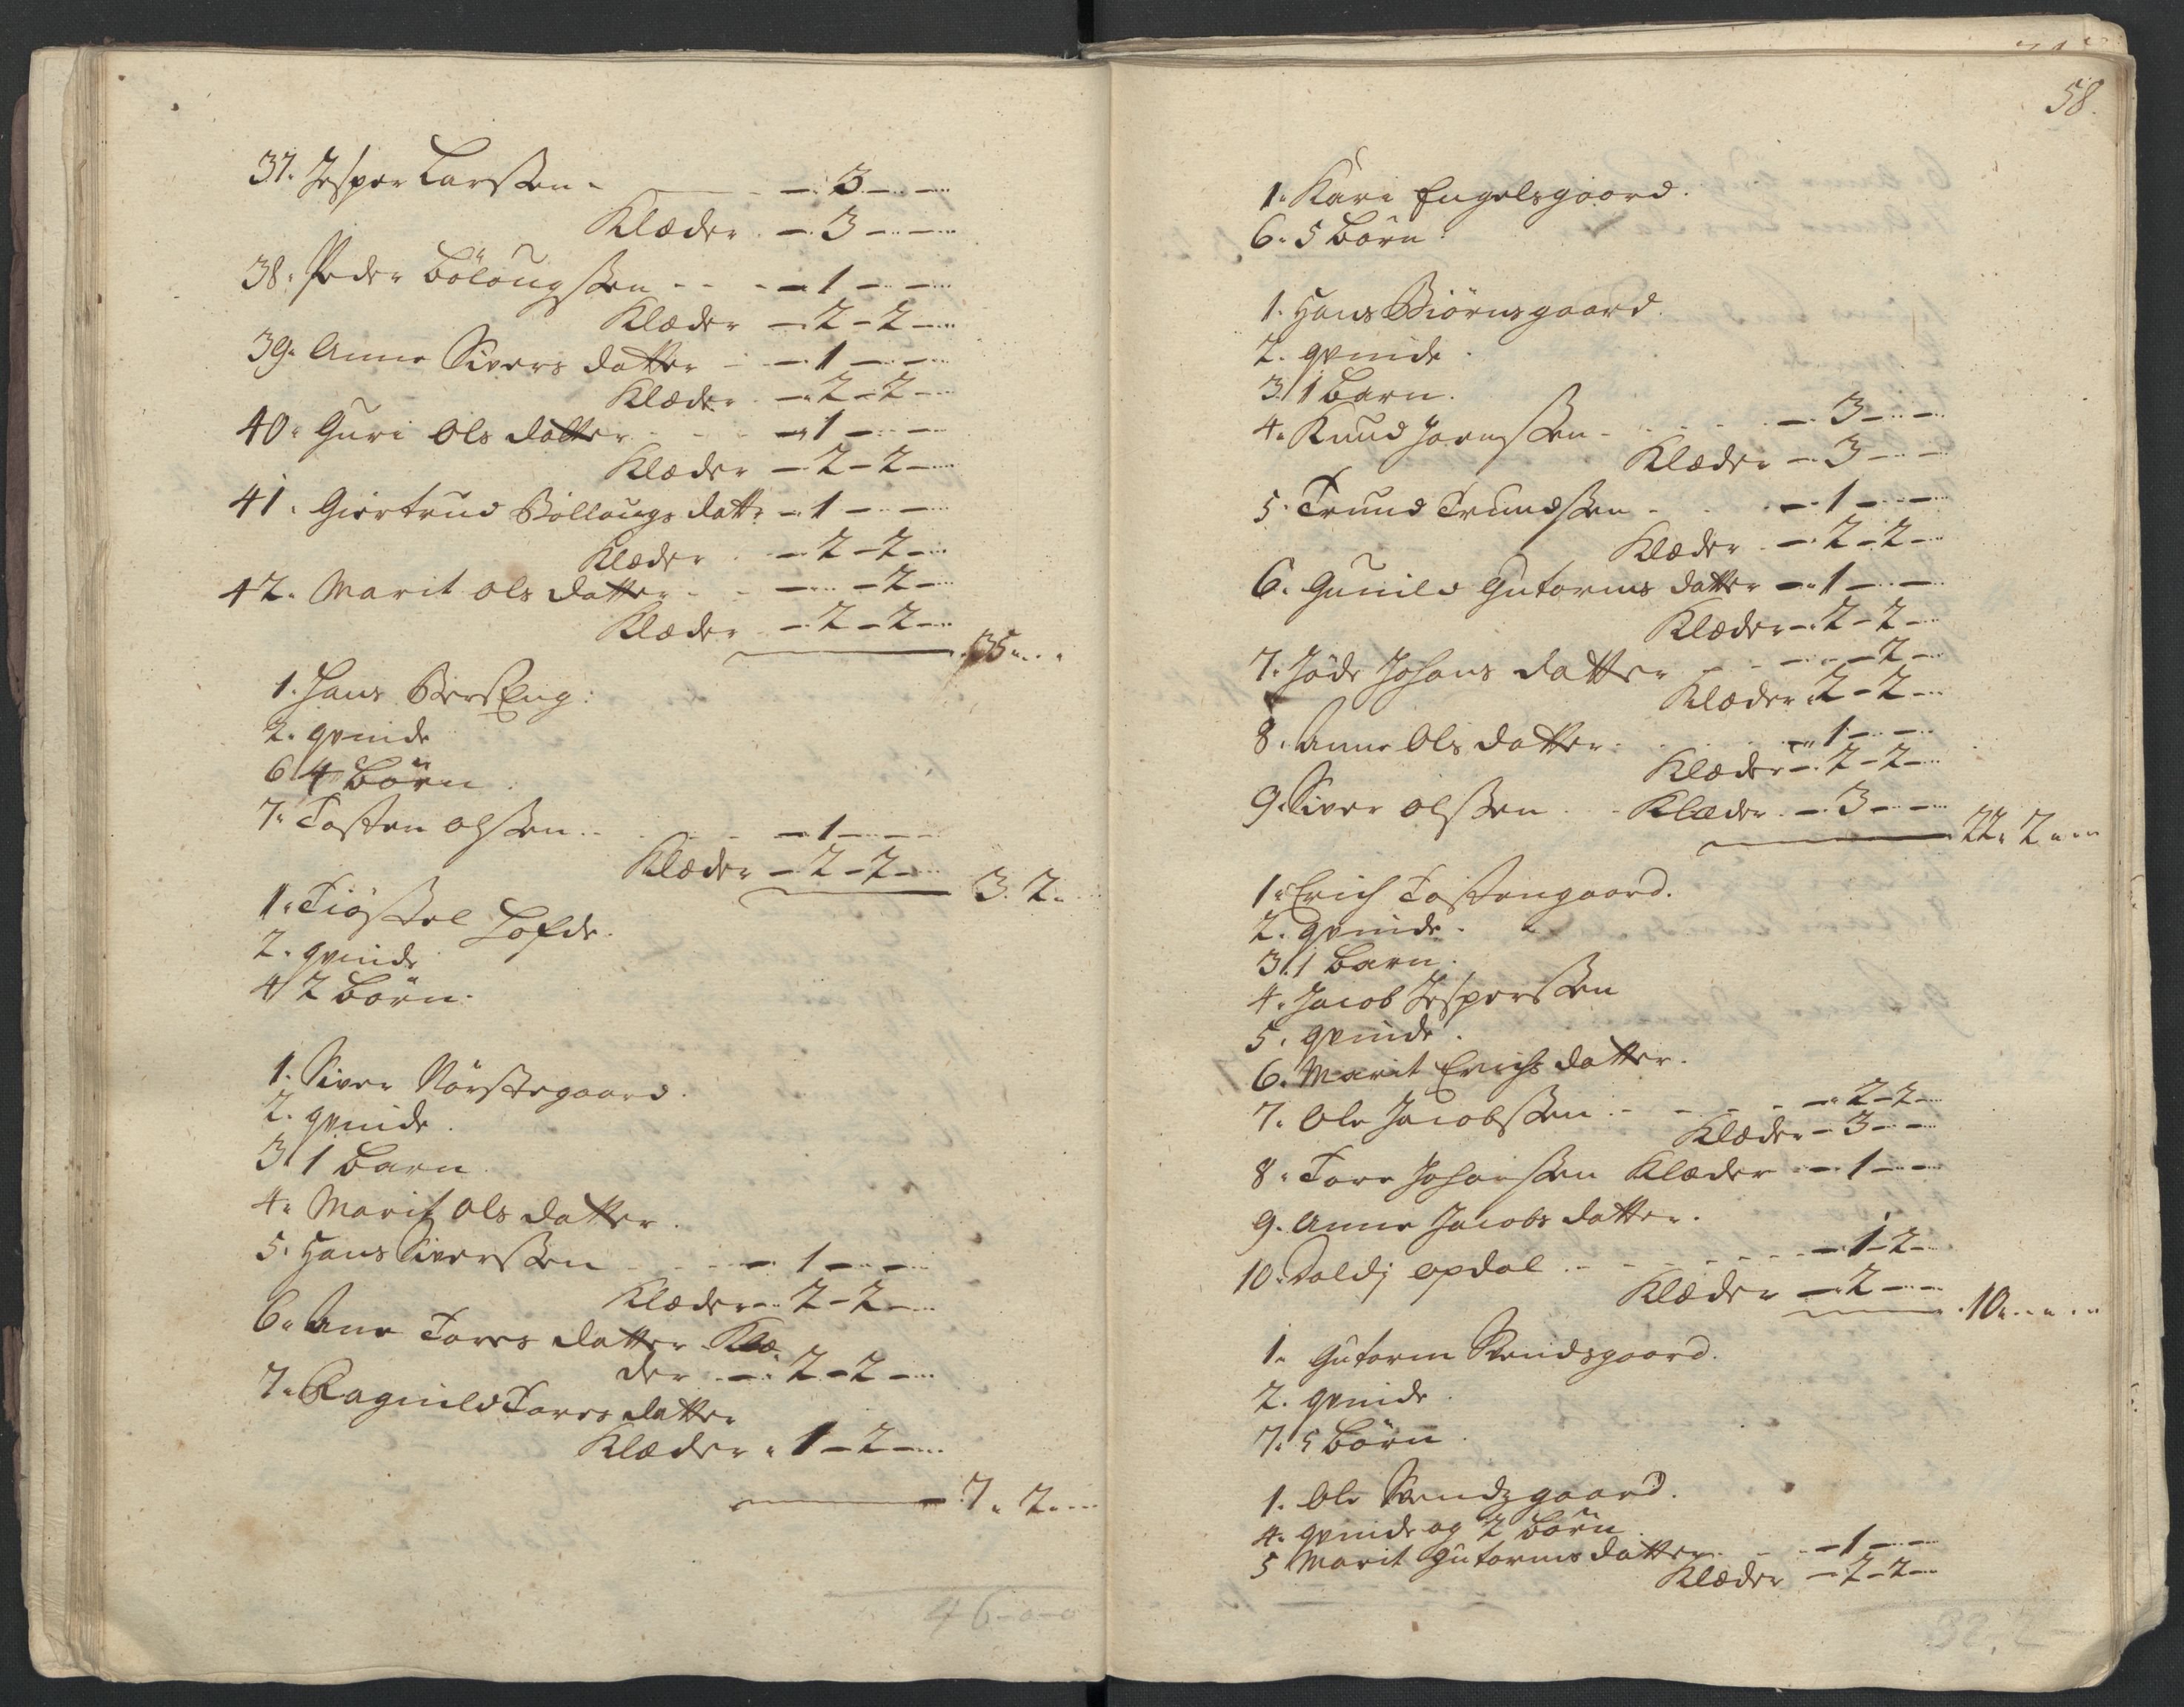 37. Jesper Larssen - — 3 — —
Klæder — 3 — —
38. Peder Bölougssen - - — 1 — —
Klæder — 2 - 2 —
39. Anne Sivers datter — 1 — —
Klæder — 2 - 2 —
40. Guri Ols datter — 1 — —
Klæder — 2 - 2 —
41. Giertrud Böllougs datt: — 1 — —
Klæder — 2 - 2 —
42. Marit Ols datter - — — 2 —
Klæder — 2 - 2 —
35
1. Hans
2. qvinde
6. 4 Börn
7. Tosten Olssen — 1 — —
Klæder — 2 - 2 —
3. 2.
1. Tiöstel Lofde.
2. qvinde
4. 2 Börn.
1. Siver Nörstegaard.
2. qvinde.
3. 1 Barn
4. Marit Ols datter.
5. Hans Siverssen — 1 — —
Klæder — 2 - 2 —
6. Ane Tores datter Klæ-
der — 2 - 2 —
7. Ragnild Tores datter
Klæder 1 - 2 —
7. 2.
46-0-0
58.
1. Kari Engelsgaard.
6. 5 Börn.
1. Hans Biörnsgaard.
2. qvinde.
3. 1 Barn.
4. Knud — 3 — —
Klæder — 3 — —
5. Trund Trundssen - — 1 — —
Klæder — 2 - 2 —
6. Gunild Gutorms datter — 1 — —
Klæder — 2 - 2 —
7. Johans datter — — 2 —
Klæder 2 - 2 —
8. Anne Ols datter. — 1 — —
Klæder — 2 - 2 —
9. Siver Olssen - Klæder — 3 — —
22. 2.
1. Erich Tostengaard.
2. qvinde.
3. 1 Barn.
4. Jacob Jesperssen
5. qvinde.
6. Marit Erichs datter.
7. Ole Jacobssen - — 2 - 2 —
Klæder — 3 — —
8. Tore Johanssen Klæder — 1 — —
9. Anne Jacobs datter.
10. opdal - — 1 - 2 —
Klæder — 2 — —
10.
1. Gutorm
2. qvinde.
7. 5 Börn.
1. Ole
4. qvinde og 2 Börn
5 Marit Gutorms datter. — 1 — —
Klæder — 2 - 2 —
32. 2